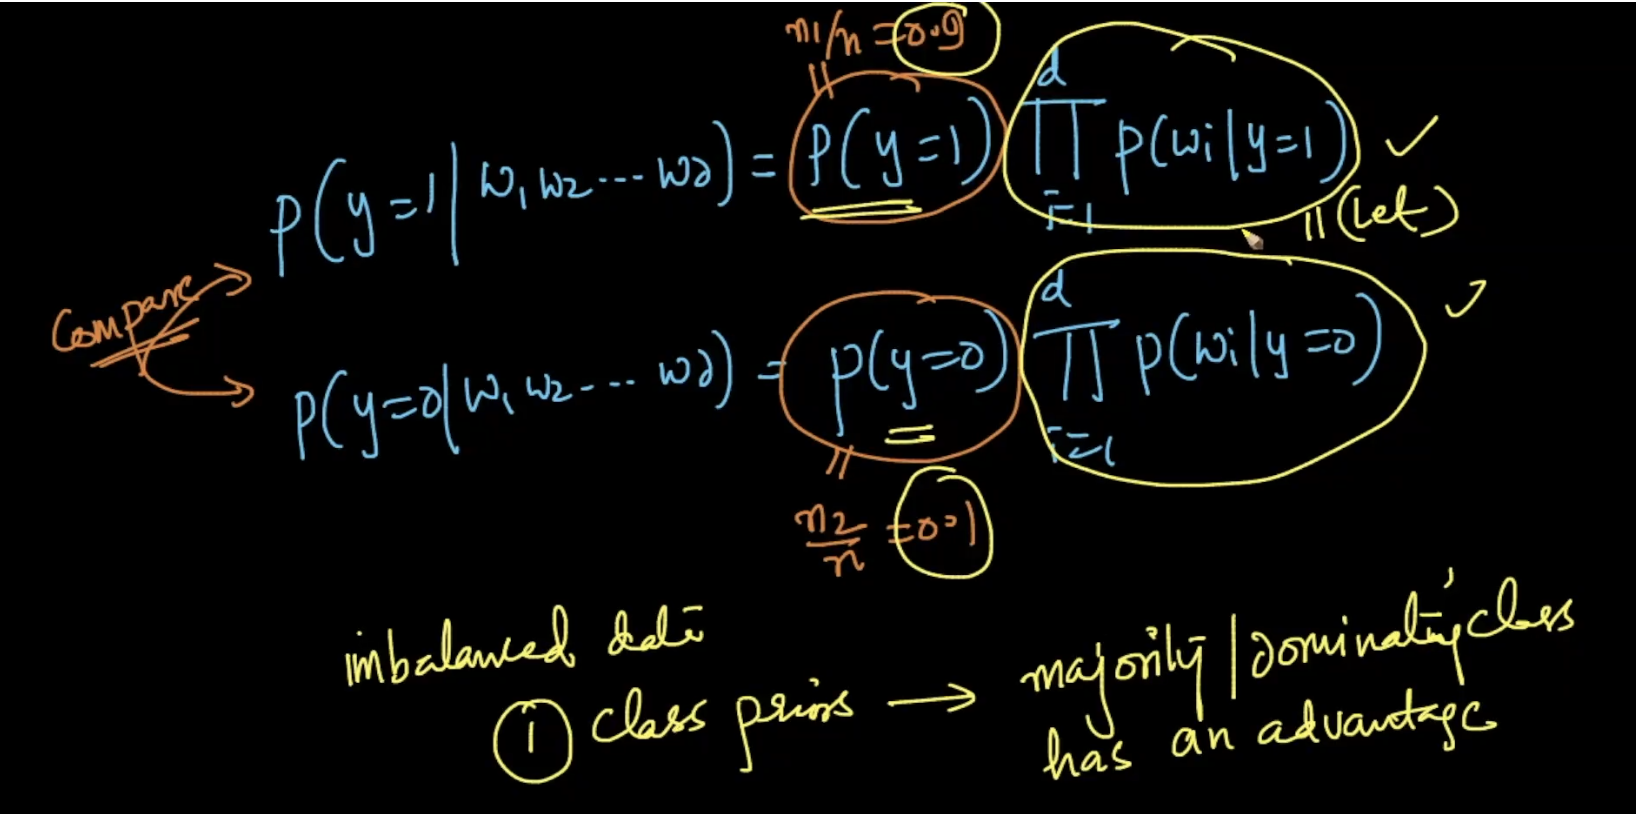 n1/n = 0.9
P(y=1 | w1 w2 ... wd) = P(y=1) d ∏ i=1 P(wi|y=1) ✓
|| (let)
Compare
P(y=0 | w1 w2 ... wd) = P(y=0) d ∏ i=1 P(wi|y=0) ✓
n2/n = 0.1
imbalanced data
① class priors → majority/dominating class
has an advantage